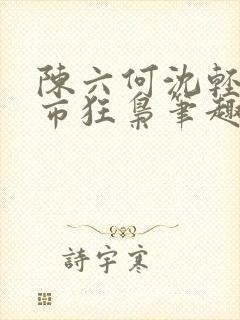 陳六何沈輕
市狂梟筆趣
詩宇寒